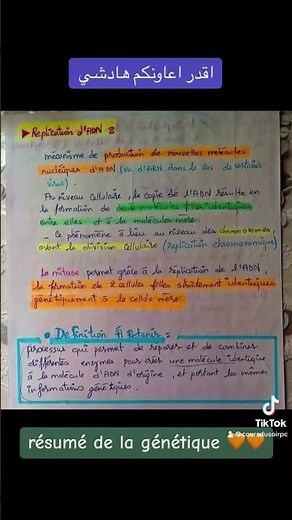 اقدر اعاونكم هادشي
Replication d'ADN :
mécanisme de production de nouvelles molécules
nucléiques d'ADN (ou d'ARN dans le cas de certains
virus).
Au niveau cellulaire, la copie de l'ADN résulte en
la formation de deux molécules filles identiques
entre elles et à la molécule mère.
- Ce phénomène à lieu au niveau des chromosomes,
avant la division cellulaire (replication chromosomique)
La mitose permet grâce à la réplication de l'ADN,
la formation de 2 cellules filles strictement identiques
génétiquement à la cellule mère.
Definition À Retenir :
processus qui permet de reparer et de combiner
differentes enzymes pour créer une molécule identique
à la molécule d'ADN d'origine, et portant les mêmes
informations génétiques.
TikTok
@coursdusoirpc
résumé de la génétique 🧡🧡